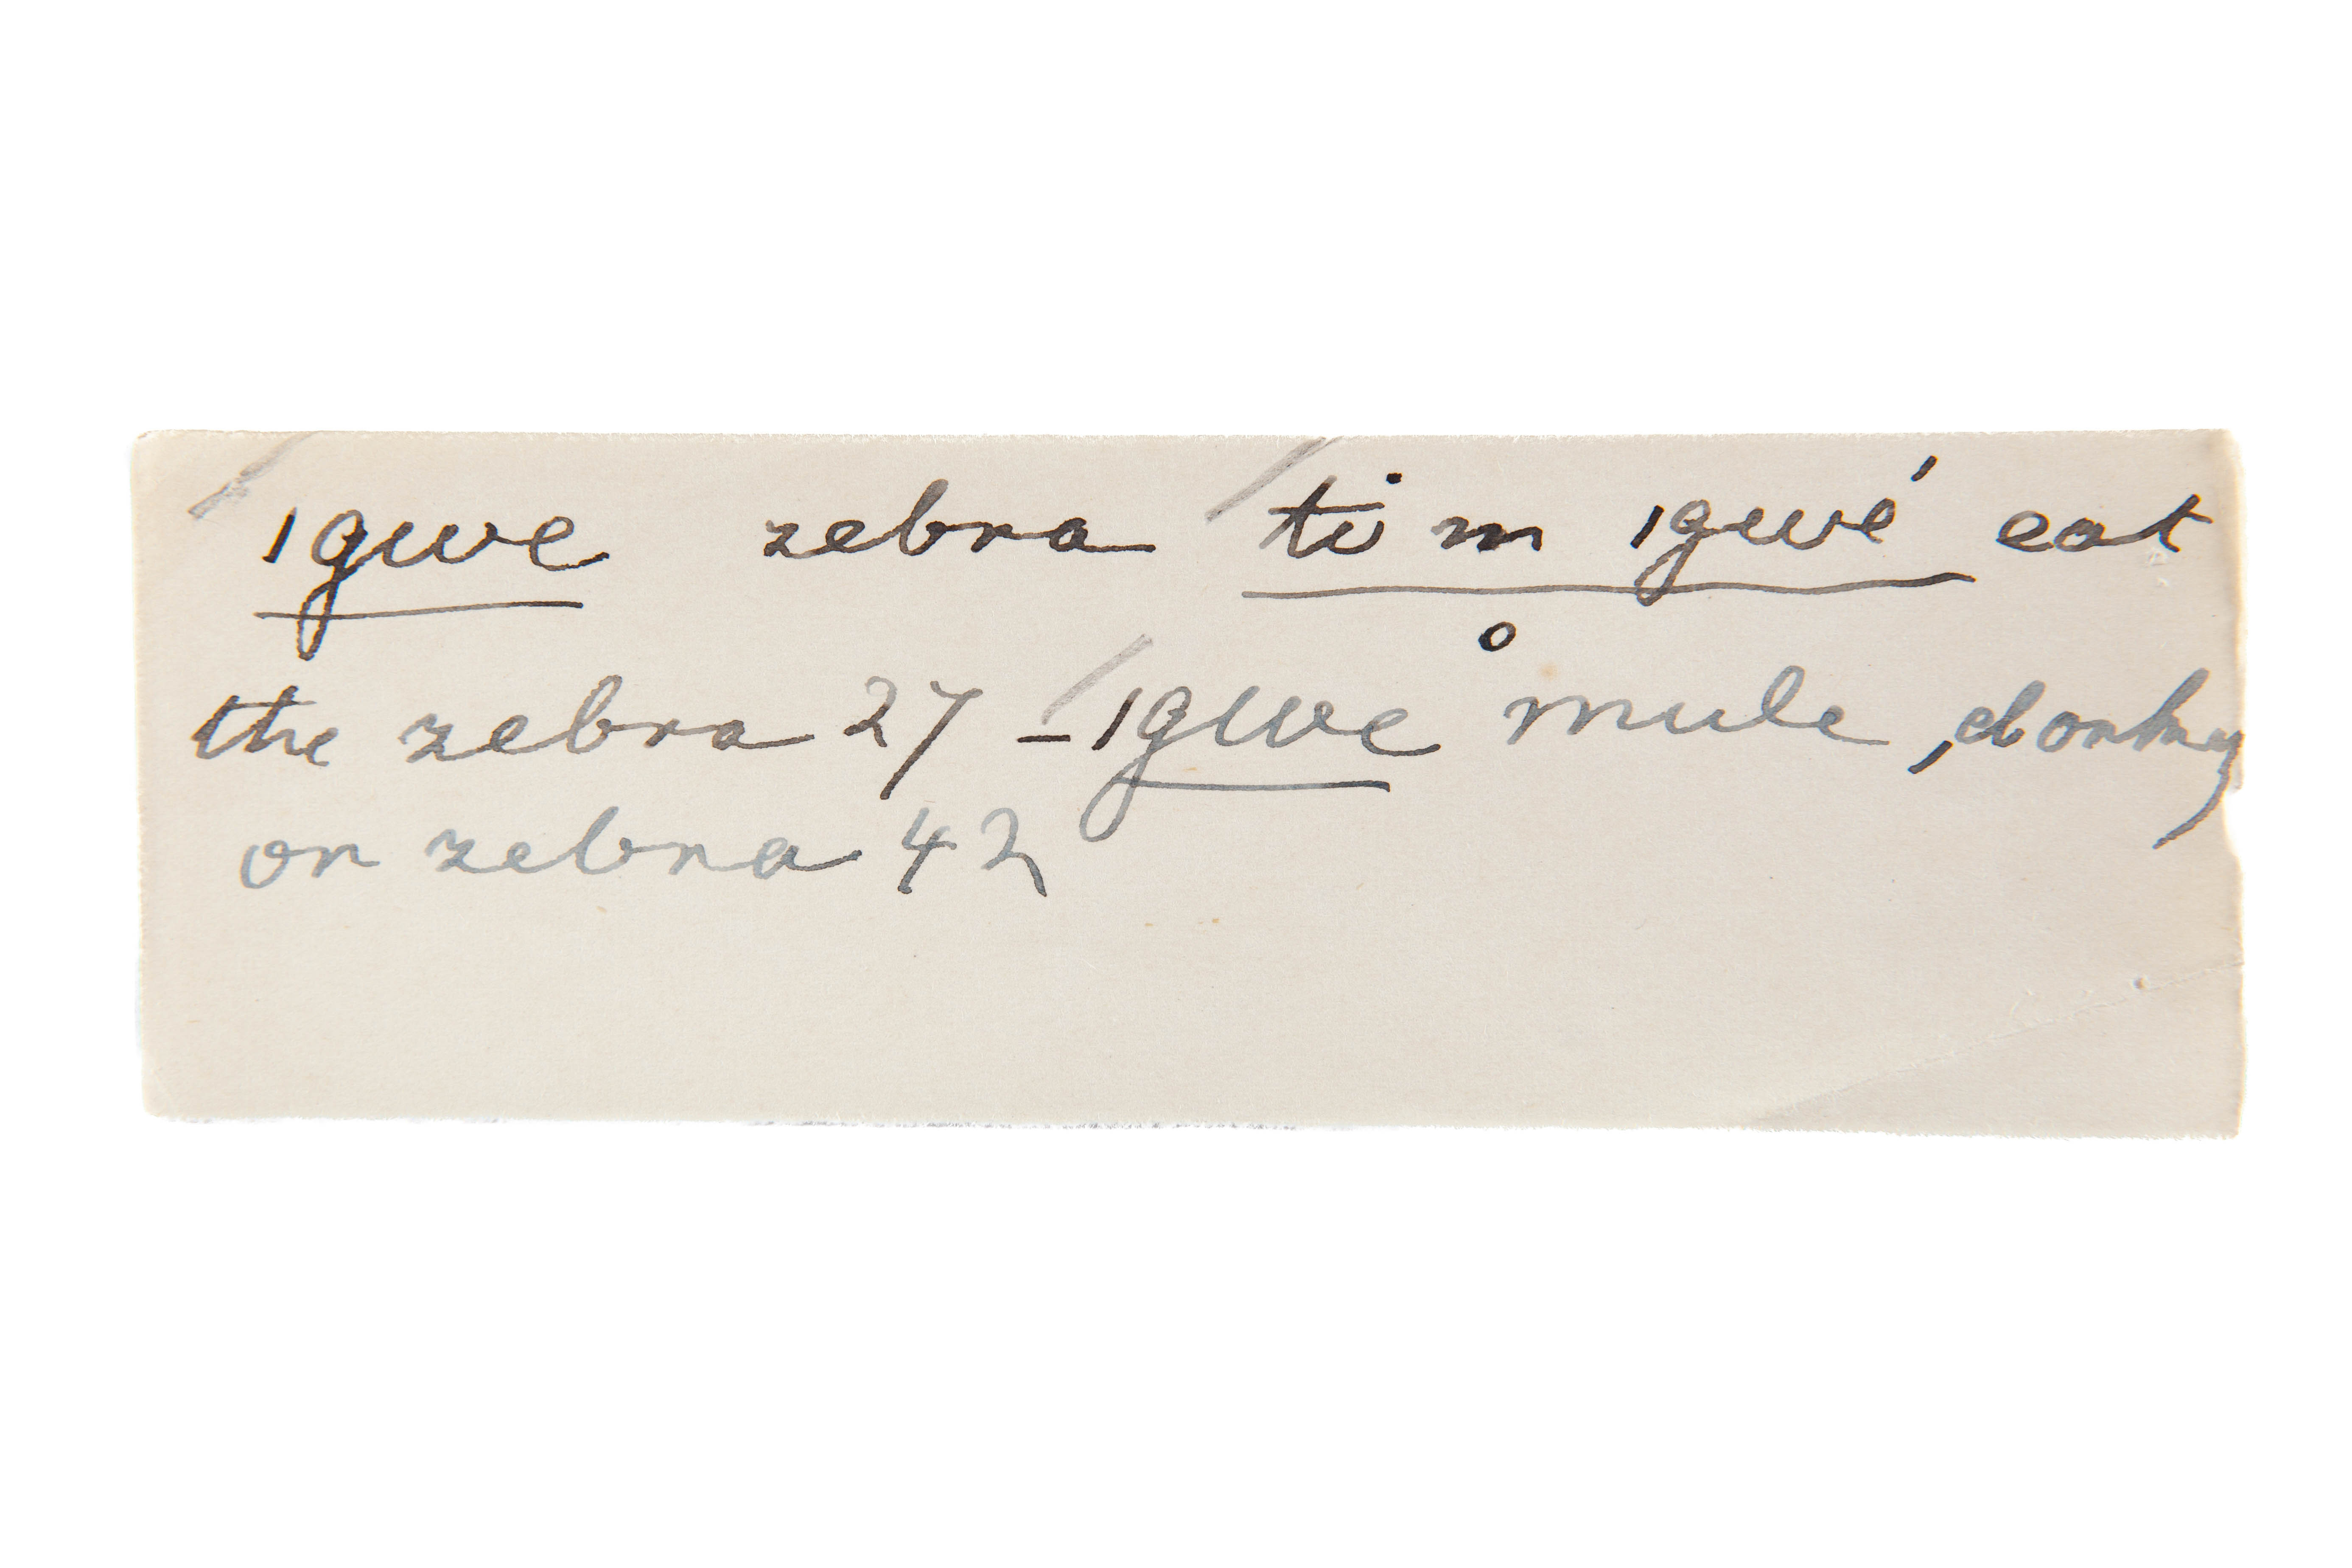 ıgwe zebra ti m̥ ıgwé eat
the zebra 27 – ıgwe mule, donkey
or zebra 42